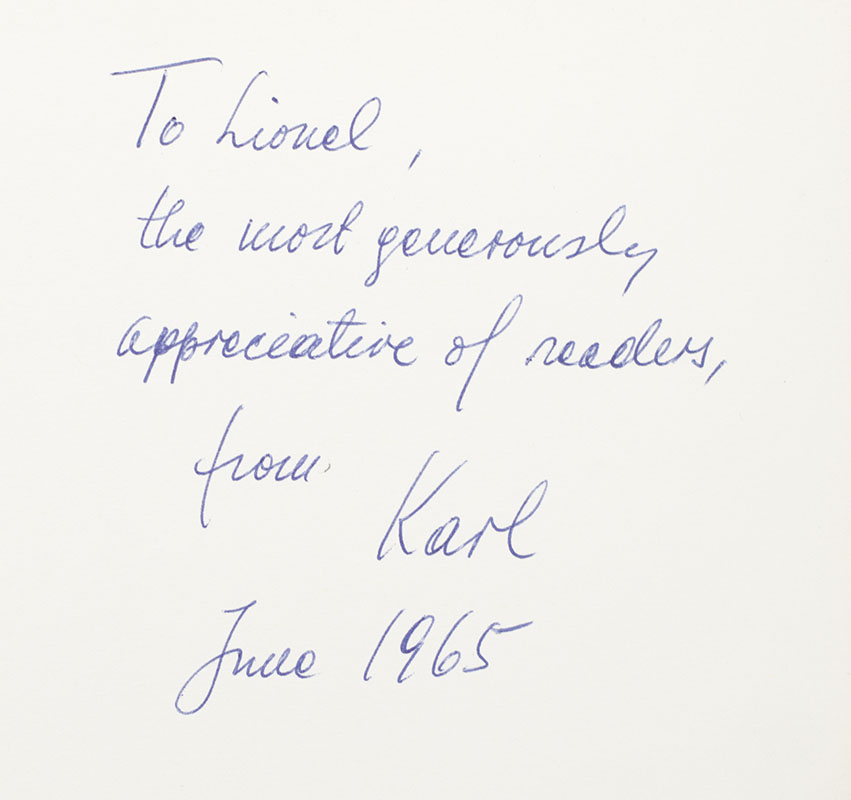 To Lionel,
the most generously
appreciative of readers,
from
Karl
June 1965